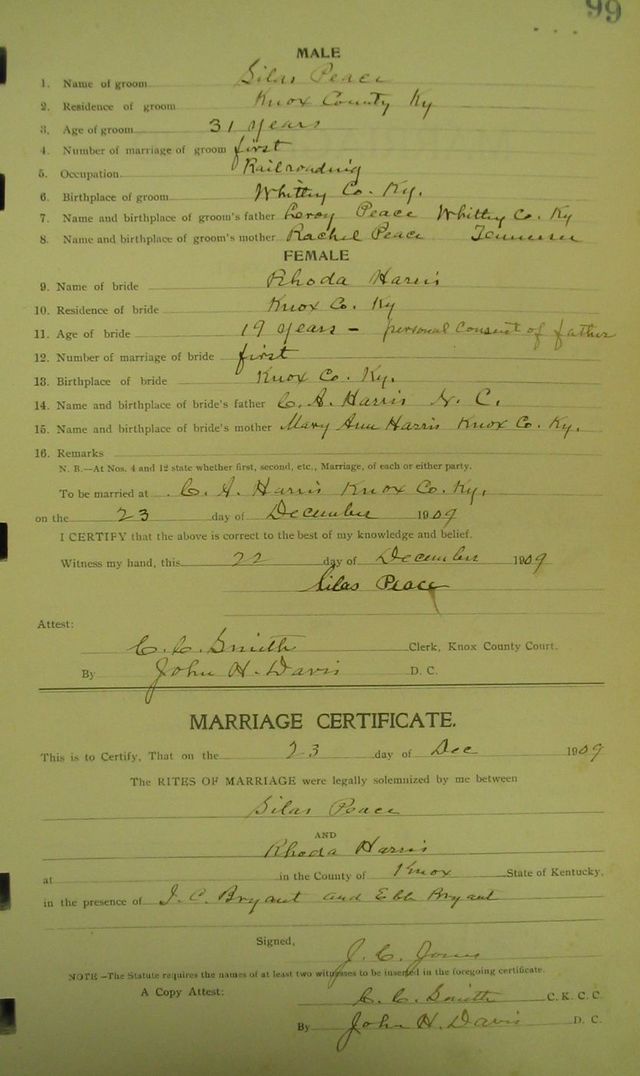 99
MALE
1. Name of groom Silas Peace
2. Residence of groom Knox County Ky
3. Age of groom 31 years
4. Number of marriage of groom first
5. Occupation Railroading
6. Birthplace of groom Whitley Co. Ky.
7. Name and birthplace of groom's father Leroy Peace Whitley Co. Ky
8. Name and birthplace of groom's mother Rachel Peace Tennessee
FEMALE
9. Name of bride Rhoda Harris
10. Residence of bride Knox Co. Ky
11. Age of bride 19 years - personal consent of father
12. Number of marriage of bride first
13. Birthplace of bride Knox Co. Ky.
14. Name and birthplace of bride's father C. A. Harris N. C.
15. Name and birthplace of bride's mother Mary Ann Harris Knox Co. Ky.
16. Remarks
N. B.—At Nos. 4 and 12 state whether first, second, etc., Marriage, of each or either party.
To be married at C. A. Harris Knox Co. Ky.
on the 23 day of December 1909
I CERTIFY that the above is correct to the best of my knowledge and belief.
Witness my hand, this 22 day of December 1909
Silas Peace
Attest:
C. C. Smith Clerk, Knox County Court.
By John H. Davis D. C.
MARRIAGE CERTIFICATE.
This is to Certify, That on the 23 day of Dec 1909
The RITES OF MARRIAGE were legally solemnized by me between
Silas Peace
AND
Rhoda Harris
at in the County of Knox State of Kentucky,
in the presence of J. C. Bryant and Ebb Bryant
Signed,
J. C. Jones
NOTE—The Statute requires the names of at least two witnesses to be inserted in the foregoing certificate.
A Copy Attest: C. C. Smith C. K. C. C.
By John H. Davis D. C.